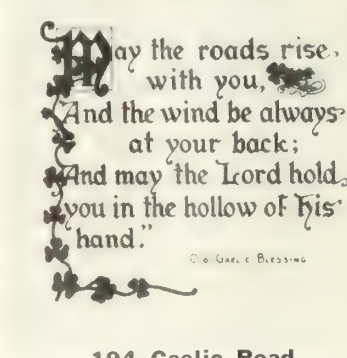 May the roads rise
with you,
And the wind be always
at your back;
And may the Lord hold
you in the hollow of His
hand."
OLD GAELIC BLESSING
104 Gaelic Road